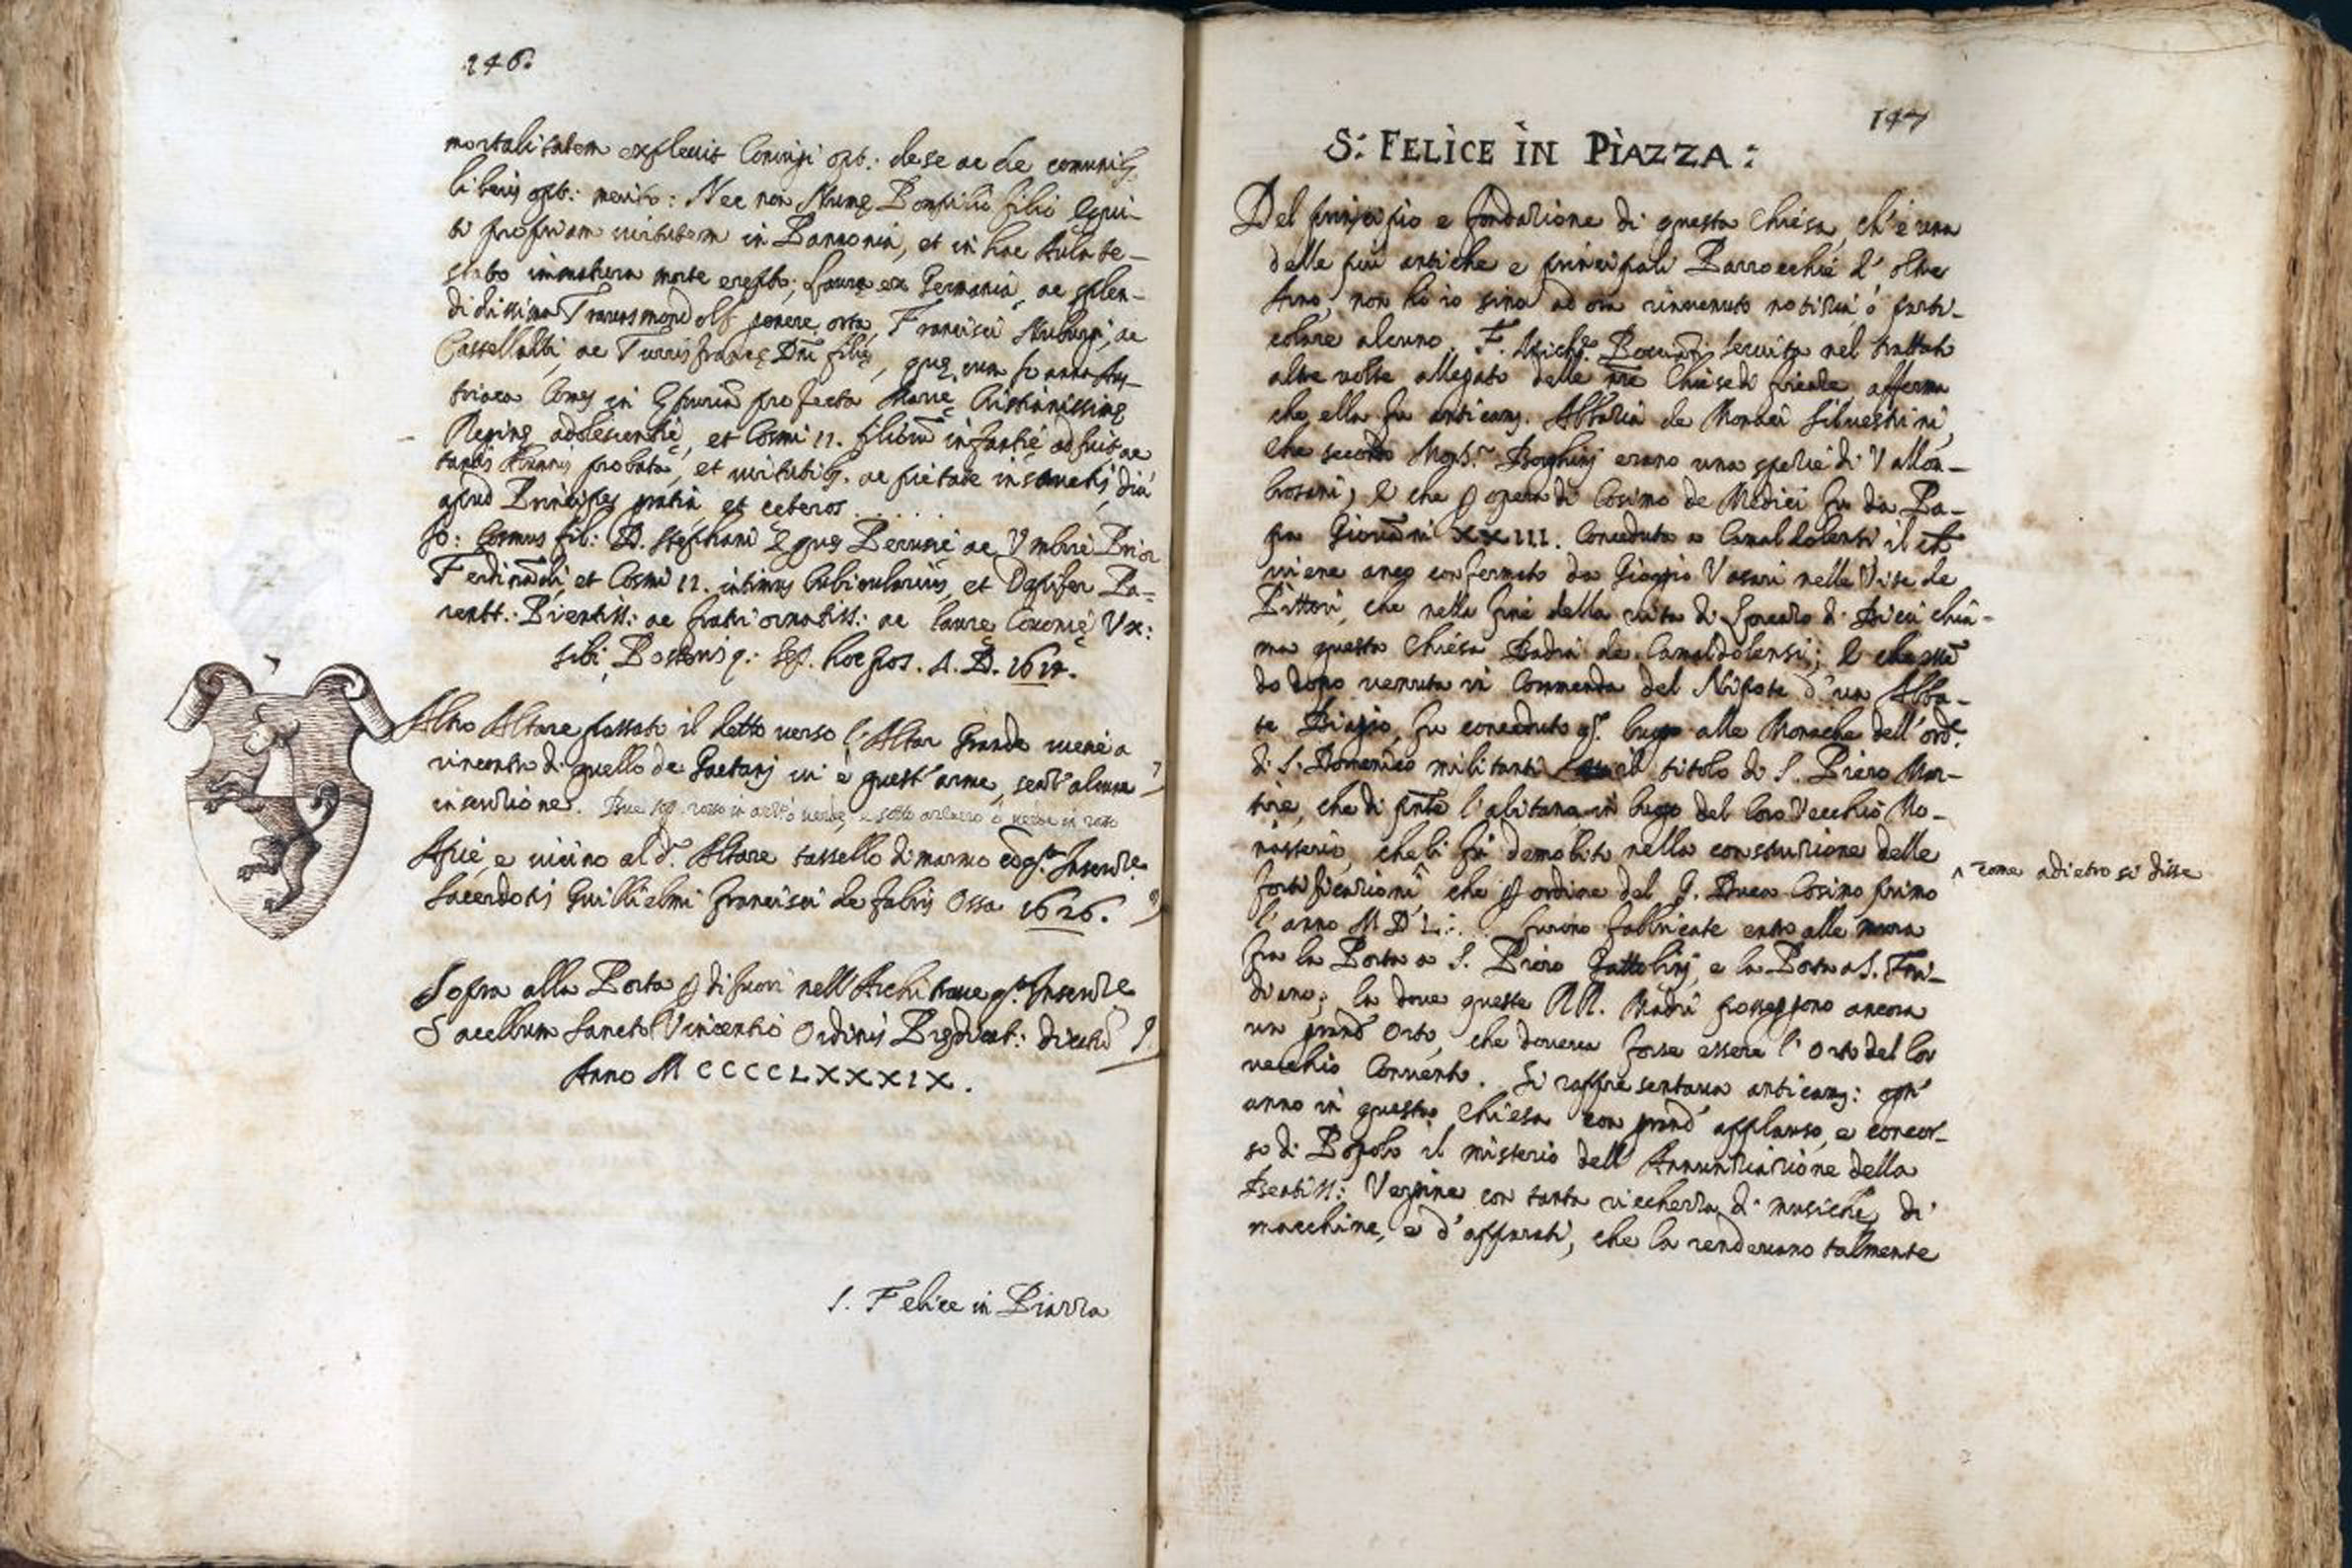 146.
mortalitatem explevit Coniugi opt: de se ac de comunib.
liberis opt: merito: Nec non Nunę Pompilio filio Equi-
ti propriam virtutem in Pannonia, et in hac Aula te-
stato immatura morte erepto; Laurę ex Germania, ac splen-
didissima genere orta, Francisci ac
Castellalti, ac Turrisfrancę Dni filię, quę cum Joanna Aus-
triaca Comes in Etruriā profecta Marię Cristianissimę
Reginę adolescentię, et Cosmi II. filiorū infantię adfuit ac
tantis Alumnis probata, et virtutib. ac pietate
apud Principes gratia et ceteros . . . . . .
Jo: Cosmus fil: D. Stephani Eques Perusię ac Umbrię Prior
Ferdinādi, et Cosmi II. intimus Cubicularius, et Dapifer Pa=
rentt: Pientiss: ac fratri ornatiss: ac Laurę Coronię Ux:
sibi, Posterisq: Sep. hoc pos. A. D.
Altro Altare passato il detto verso l'Altar Grande viene a
rincontro di quello de Gaetanj vi è quest'arme, senz'alcuna
inscrizione.
Apiè, e vicino al d.º Altare tassello di marmo cō q.ta Inscriz.e
Sacerdotis Guillielmi Francisci de Fabris Ossa 1626.
Sopra alla Porta p di fuori nell'Architrave q.ta Inscriz.e
Sacellum Sancto Vincentio Ordinis Prędicat: dicatū
Anno MCCCCLXXXIX.
S. Felice in Piazza
147
S: FELICE IN PIAZZA:
Del principio e fondazione di questa Chiesa, ch'è una
delle più antiche e principali Parrocchie d'oltr'
Arno, non ho io sino ad ora rinvenuto notizia ò parti-
colare alcuno. F. Mich.e Pocciāti Servita nel trattato
altre volte allegato delle nr̄e Chiese di fiorenza, afferma
che ella fu anticam. Abbazia de Monaci Silvestrini,
che secondo Mons.r Borghinj erano una spezie di Vallon-
brosani; E che p opera di Cosimo de Medici fu da Pa-
pa Giovāni XXIII. Conceduta a Camaldolensi il che
viene anco confermato da Giorgio Vasari nelle Vite de
Pittori, che nella fine della vita di Lorenzo di Bicci chia-
ma questa Chiesa Badia de Camaldolensi; E che essē
do dopo venuta in Commenda del Nipote d'un Abba-
te Biagio, fu conceduto q.º luogo alle Monache dell'ord.e
di S. Domenico militanti il titolo di S. Piero Mar-
tire, che di p̄nte l'abitano in luogo del loro Vecchio Mo-
nasterio, che li fù demolito nella construzione delle
fortificazioni ^ che p ordine del G. Duca Cosimo primo
^ come adietro si disse
l'anno MDL:.. furono fabbricate entro alle mura
fra la Porta a S. Piero Gattolinj, e la Porta a S. Fri-
diano; la dove queste RR. Madri posseggono ancora
un grand'Orto, che doveva forse essere l'Orto del lor
vecchio Convento. Si rappresentava anticam: ogn'
anno in questa Chiesa con grand'applauso, e concor-
so di Popolo il misterio dell'Annunziazione della
Beatiss: Vergine con tanta ricchezza di musiche, di
macchine, e d'apparati, che la rendevano talmente